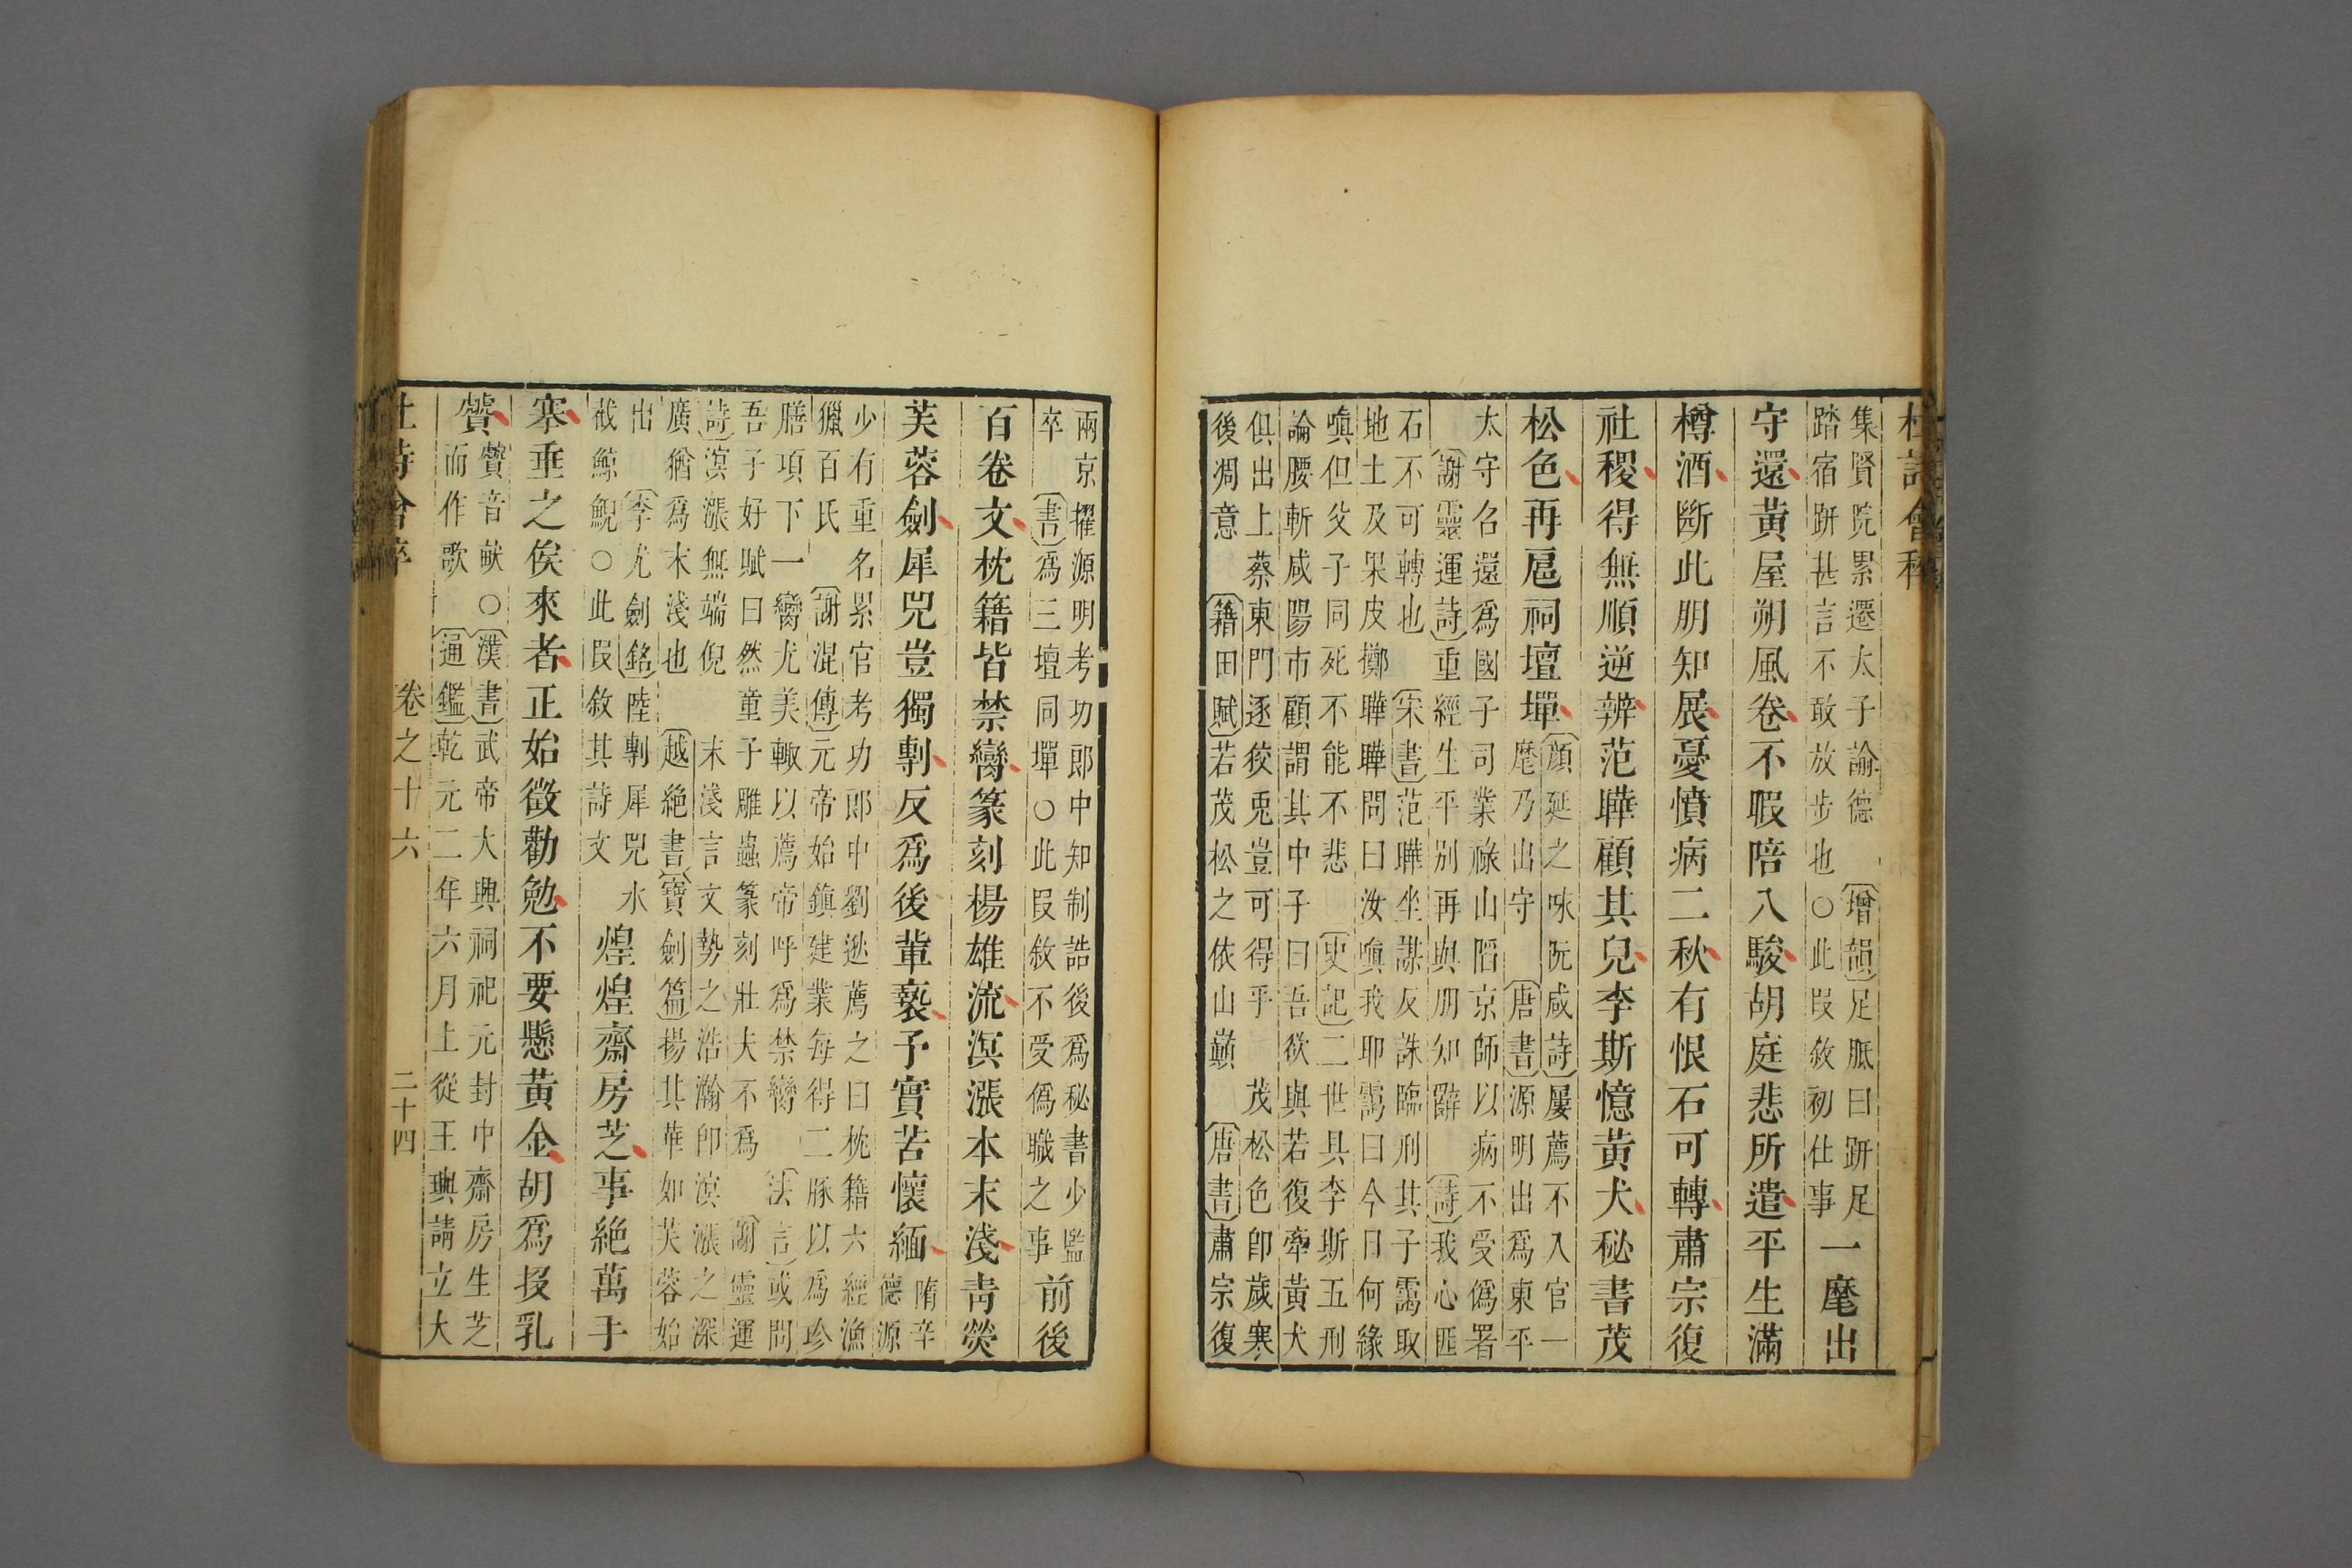 杜詩會稡
集賢院累遷太子諭德 〔增韻〕足胝曰趼足
踏宿趼甚言不敢放步也○此叚敘初仕事
一麾出
守還黃屋朔風卷不暇陪八駿胡庭悲所遣平生滿
樽酒斷此朋知展憂憤病二秋有恨石可轉肅宗復
社稷得無順逆辨范曄顧其兒李斯憶黃犬秘書茂
松色再扈祠壇墠
〔顔延之咏阮咸詩〕屢薦不入官一
麾乃出守 〔唐書〕源明出爲東平
太守召還爲國子司業祿山陷京師以病不受僞署
〔謝靈運詩〕重經生平別再與朋知辭 〔詩〕我心匪
石不可轉也 〔宋書〕范曄坐謀反誅臨刑其子靄取
地土及果皮擲曄曄問曰汝嗔我耶靄曰今日何緣
嗔但父子同死不能不悲 〔史記〕二世具李斯五刑
論腰斬咸陽市顧謂其中子曰吾欲與若復牽黃犬
俱出上蔡東門逐狡兎豈可得乎 茂松色卽歲寒
後凋意 〔籍田賦〕若茂松之依山巔 〔唐書〕肅宗復
兩京擢源明考功郎中知制誥後爲秘書少監
卒 〔書〕爲三壇同墠○此叚敘不受僞職之事
前後
百卷文枕籍皆禁臠篆刻楊雄流溟漲本末淺靑熒
芙蓉劍犀兕豈獨剸反爲後輩褻予實苦懷緬
隋辛
德源
少有重名累官考功郎中劉逖薦之曰枕籍六經漁
獵百氏 〔謝混傳〕元帝始鎮建業每得二豚以爲珍
膳項下一臠尤美輙以薦帝呼爲禁臠 〔法言〕或問
吾子好賦曰然童子雕蟲篆刻壯夫不爲 〔謝靈運
詩〕溟漲無端倪 末淺言文勢之浩瀚卽溟漲之深
廣猶爲末淺也 〔越絶書〕〔寶劍篇〕揚其華如芙蓉始
出 〔李尤劍銘〕陸剸犀兕水
截鯨鯢○此叚敘其詩文
煌煌齋房芝事絶萬手
搴垂之俟來者正始徵勸勉不要懸黃金胡爲投乳
贙
贙音𤞞○〔漢書〕武帝大興祠祀元封中齋房生芝
而作歌 〔通鑑〕乾元二年六月上從王璵請立大
杜詩會稡 卷之十六 二十四